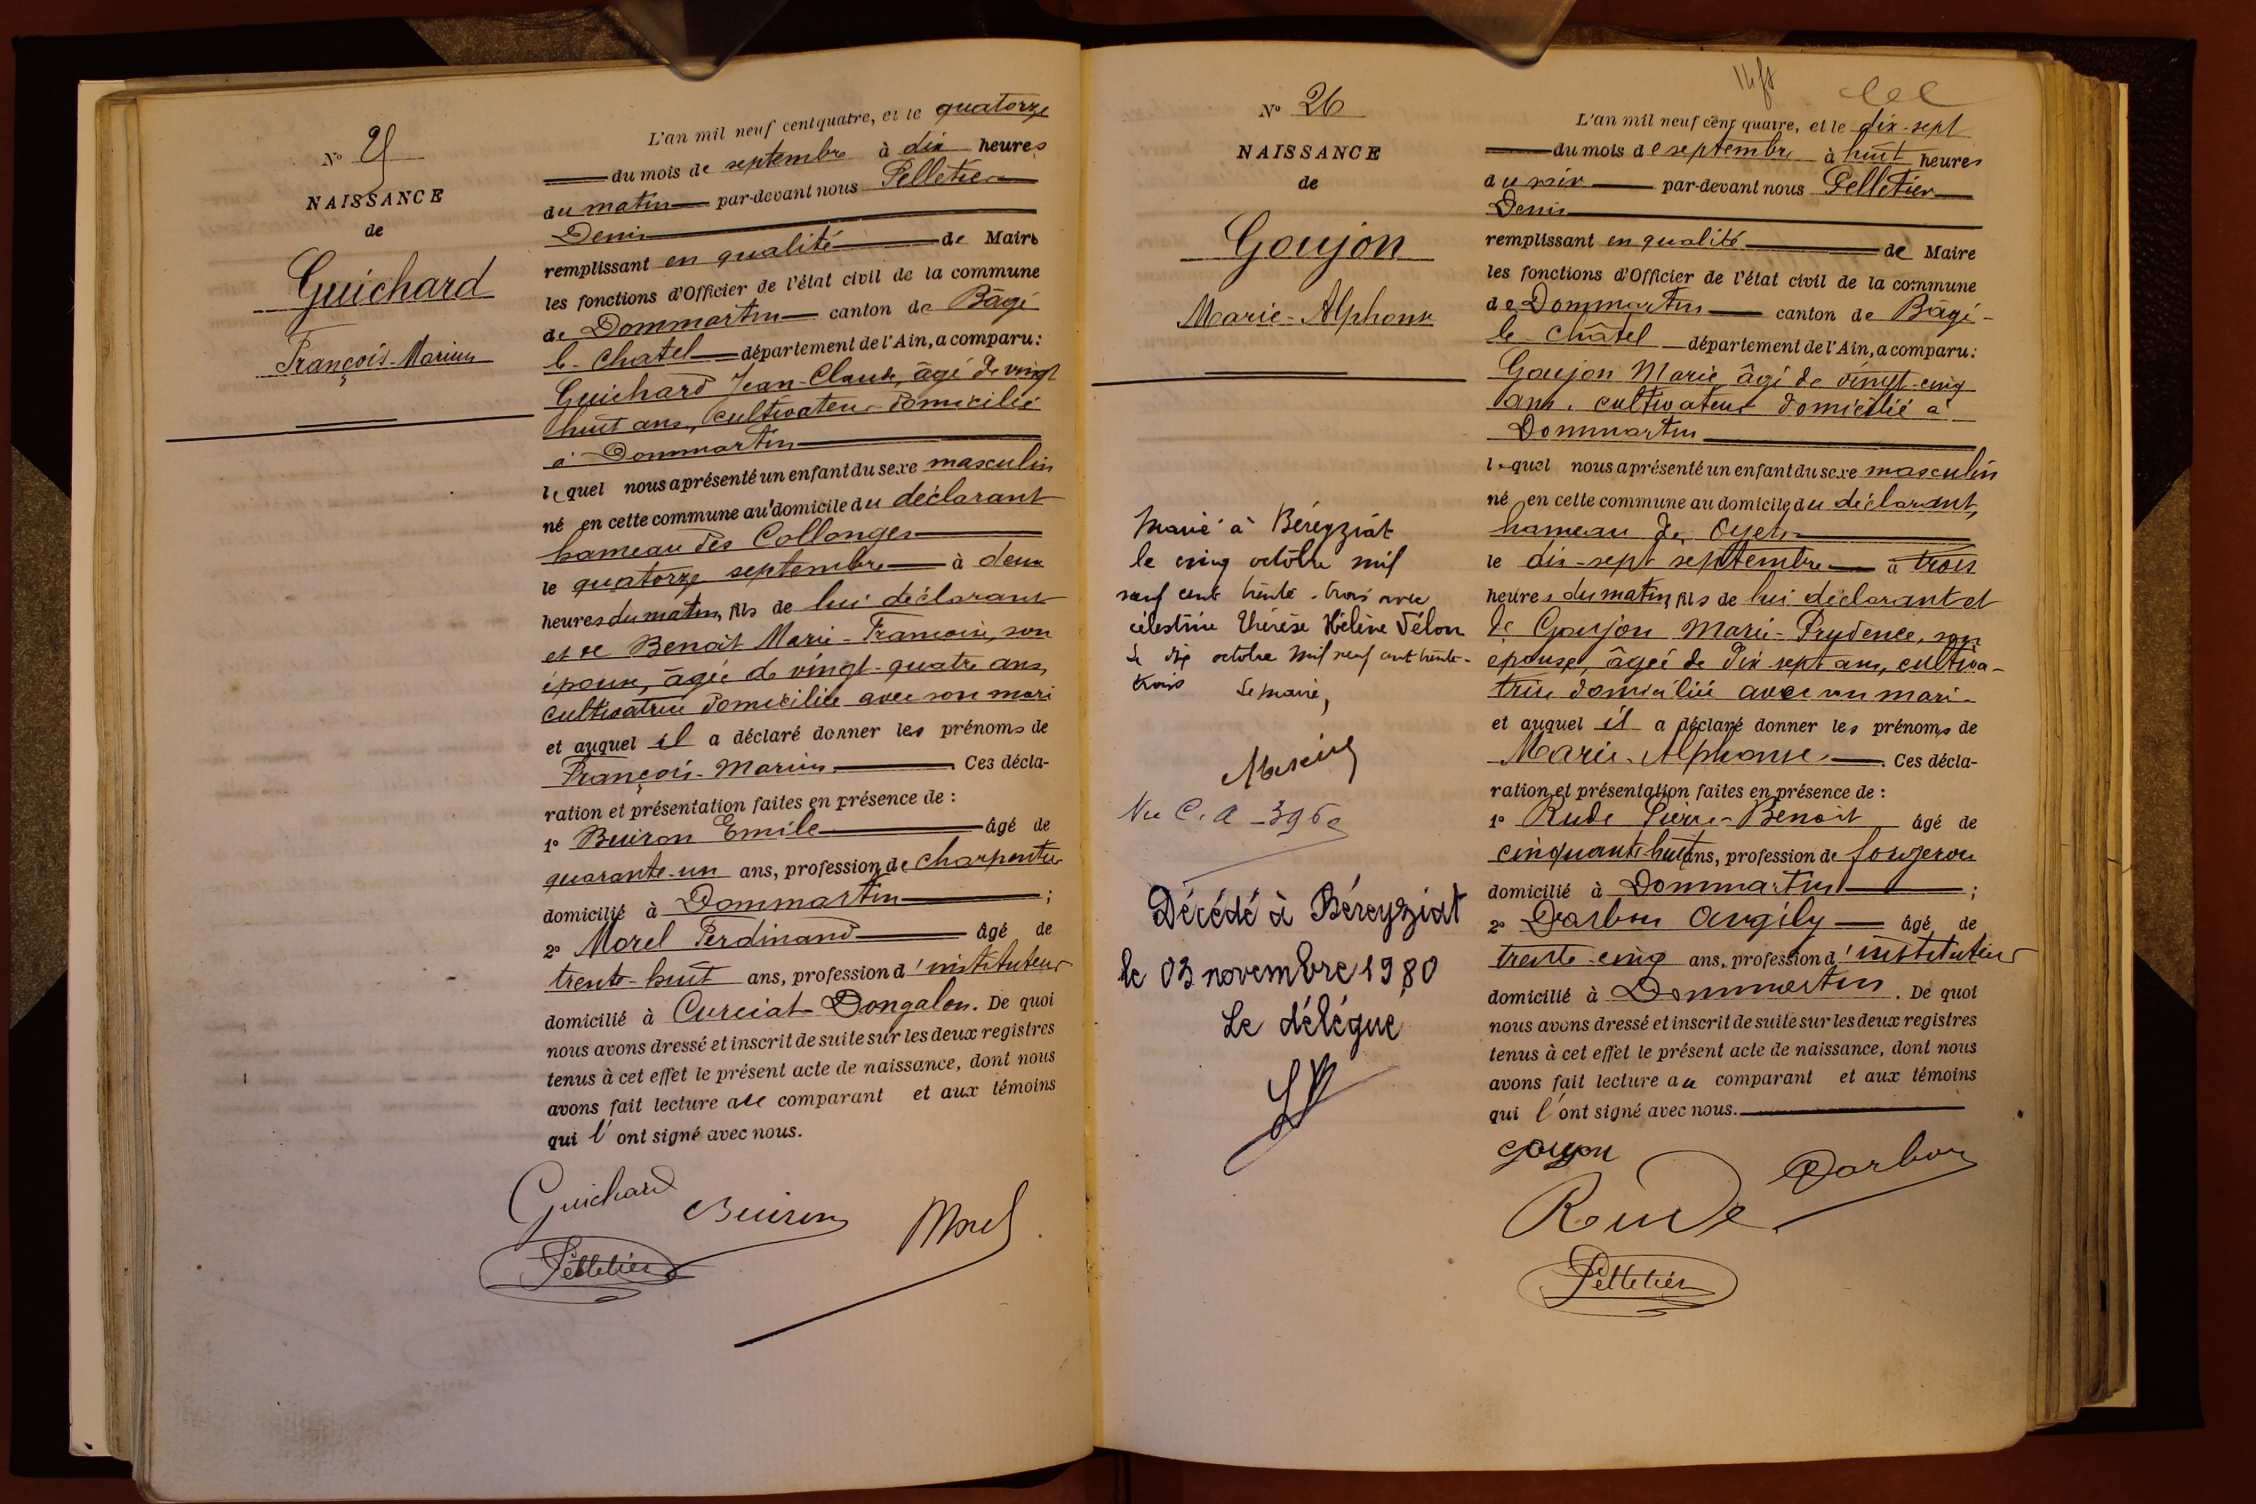 N° 25
NAISSANCE
de
Guichard
François-Marius
L'an mil neuf cent quatre, et le quatorze
du mois de septembre à dix heures
du matin par-devant nous Pelletier
Denis
remplissant en qualité de Maire
les fonctions d'Officier de l'état civil de la commune
de Dommartin canton de Bâgé
le Chatel département de l'Ain, a comparu:
Guichard Jean-Claude, âgé de vingt
huit ans, cultivateur domicilié
à Dommartin
lequel nous a présenté un enfant du sexe masculin
né en cette commune au domicile du déclarant
hameau des Collonges
le quatorze septembre à deux
heures du matin, fils de lui déclarant
et de Benoit Marie-Francoise, son
épouse, âgée de vingt-quatre ans,
cultivatrice domiciliée avec son mari
et auquel il a déclaré donner les prénoms de
François-Marius. Ces décla-
ration et présentation faites en présence de :
1° Beuiron Emile âgé de
quarante-un ans, profession de charpentier
domicilié à Dommartin ;
2° Morel Ferdinand âgé de
trente-huit ans, profession d'instituteur
domicilié à Curciat-Dongalon. De quoi
nous avons dressé et inscrit de suite sur les deux registres
tenus à cet effet le présent acte de naissance, dont nous
avons fait lecture au comparant et aux témoins
qui l'ont signé avec nous.
Guichard Beuiron Morel
Pelletier
N° 26
NAISSANCE
de
Goujon
Marie-Alphonse
Marié à Béréyziat
le cinq octobre mil
neuf cent trente-trois avec
Célestine Thérèse Hélène Vélon
Le dix octobre mil neuf cent trente-
trois Le maire,
Vu C.A - 396
Décédé à Béreyziat
le 03 novembre 1980
Le délégué
L'an mil neuf cent quatre, et le dix-sept
du mois de septembre à huit heures
du soir par-devant nous Pelletier
Denis
remplissant en qualité de Maire
les fonctions d'Officier de l'état civil de la commune
de Dommartin canton de Bâgé-
le Châtel département de l'Ain, a comparu:
Goujon Marie, âgé de vingt-cinq
ans, cultivateur domicilié à
Dommartin
lequel nous a présenté un enfant du sexe masculin
né en cette commune au domicile du déclarant,
hameau de
le dix-sept septembre à trois
heures du matin, fils de lui déclarant et
de Goujon Marie-Prudence, son
épouse, âgée de dix-sept ans, cultiva-
trice domiciliée avec son mari
et auquel il a déclaré donner les prénoms de
Marie-Alphonse. Ces décla-
ration et présentation faites en présence de :
1° Rude Pierre-Benoit âgé de
cinquante-huit ans, profession de forgeron
domicilié à Dommartin ;
2° Darbon Angily âgé de
trente-cinq ans, profession d'instituteur
domicilié à Dommartin. De quoi
nous avons dressé et inscrit de suite sur les deux registres
tenus à cet effet le présent acte de naissance, dont nous
avons fait lecture au comparant et aux témoins
qui l'ont signé avec nous.
Goujon Darbon
Rude
Pelletier